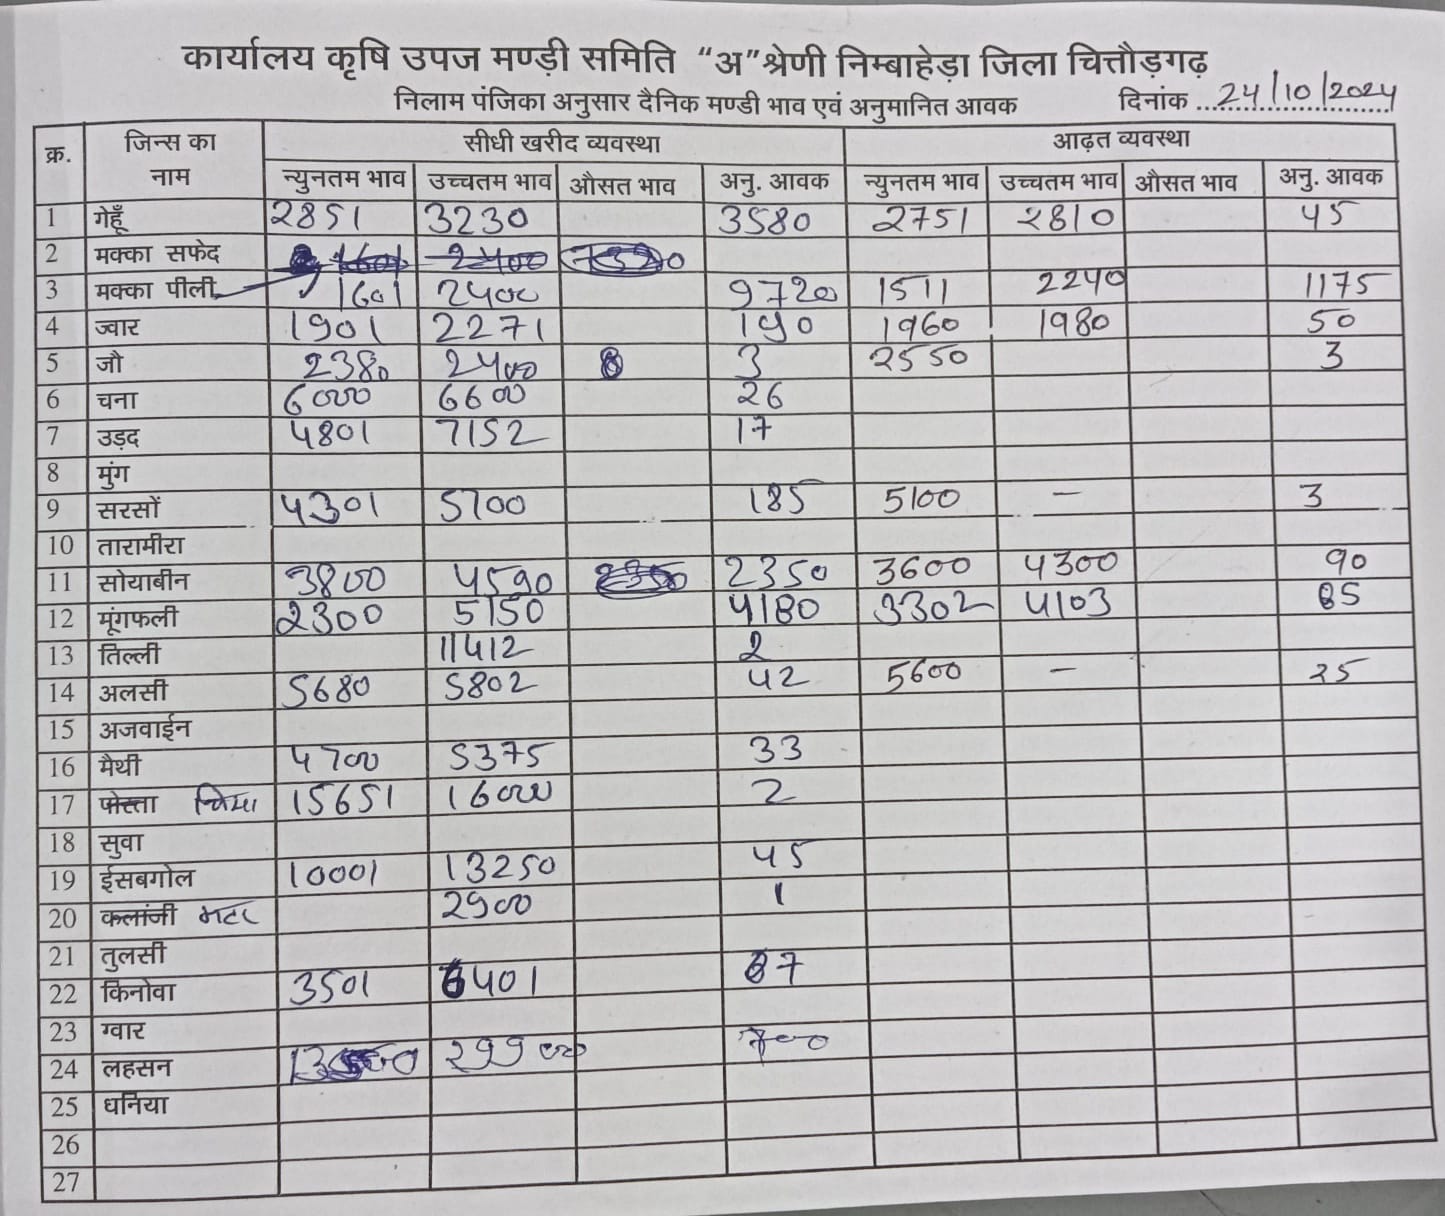 कार्यालय कृषि उपज मण्डी समिति “अ”श्रेणी निम्बाहेड़ा जिला चित्तौड़गढ़
निलाम पंजिका अनुसार दैनिक मण्डी भाव एवं अनुमानित आवक दिनांक 24/10/2024
क्र. जिन्स का नाम सीधी खरीद व्यवस्था आढ़त व्यवस्था
न्युनतम भाव उच्चतम भाव औसत भाव अनु. आवक न्युनतम भाव उच्चतम भाव औसत भाव अनु. आवक
1 गेहूँ 2851 3230 3580 2751 2810 45
2 मक्का सफेद 1601 2400
3 मक्का पीली 1601 2400 9720 1511 2240 1175
4 ज्वार 1901 2271 190 1960 1980 50
5 जौ 2380 2400 3 2550 3
6 चना 6000 6600 26
7 उड़द 4801 7152 17
8 मुंग
9 सरसों 4301 5700 185 5100 - 3
10 तारामीरा
11 सोयाबीन 3800 4590 2350 2350 3600 4300 90
12 मूंगफली 2300 5150 4180 3302 4103 85
13 तिल्ली 11412 2
14 अलसी 5680 5802 42 5600 - 25
15 अजवाईन
16 मैथी 4700 5375 33
17 पोस्ता चिया 15651 16000 2
18 सुवा
19 ईसबगोल 10001 13250 45
20 कलांजी मटर 2900 1
21 तुलसी
22 किनोवा 3501 6401 67
23 ग्वार
24 लहसन 29900 700
25 धनिया
26
27